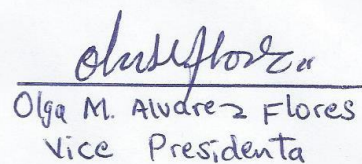 Olga M. Alvarez Flores
Vice Presidenta